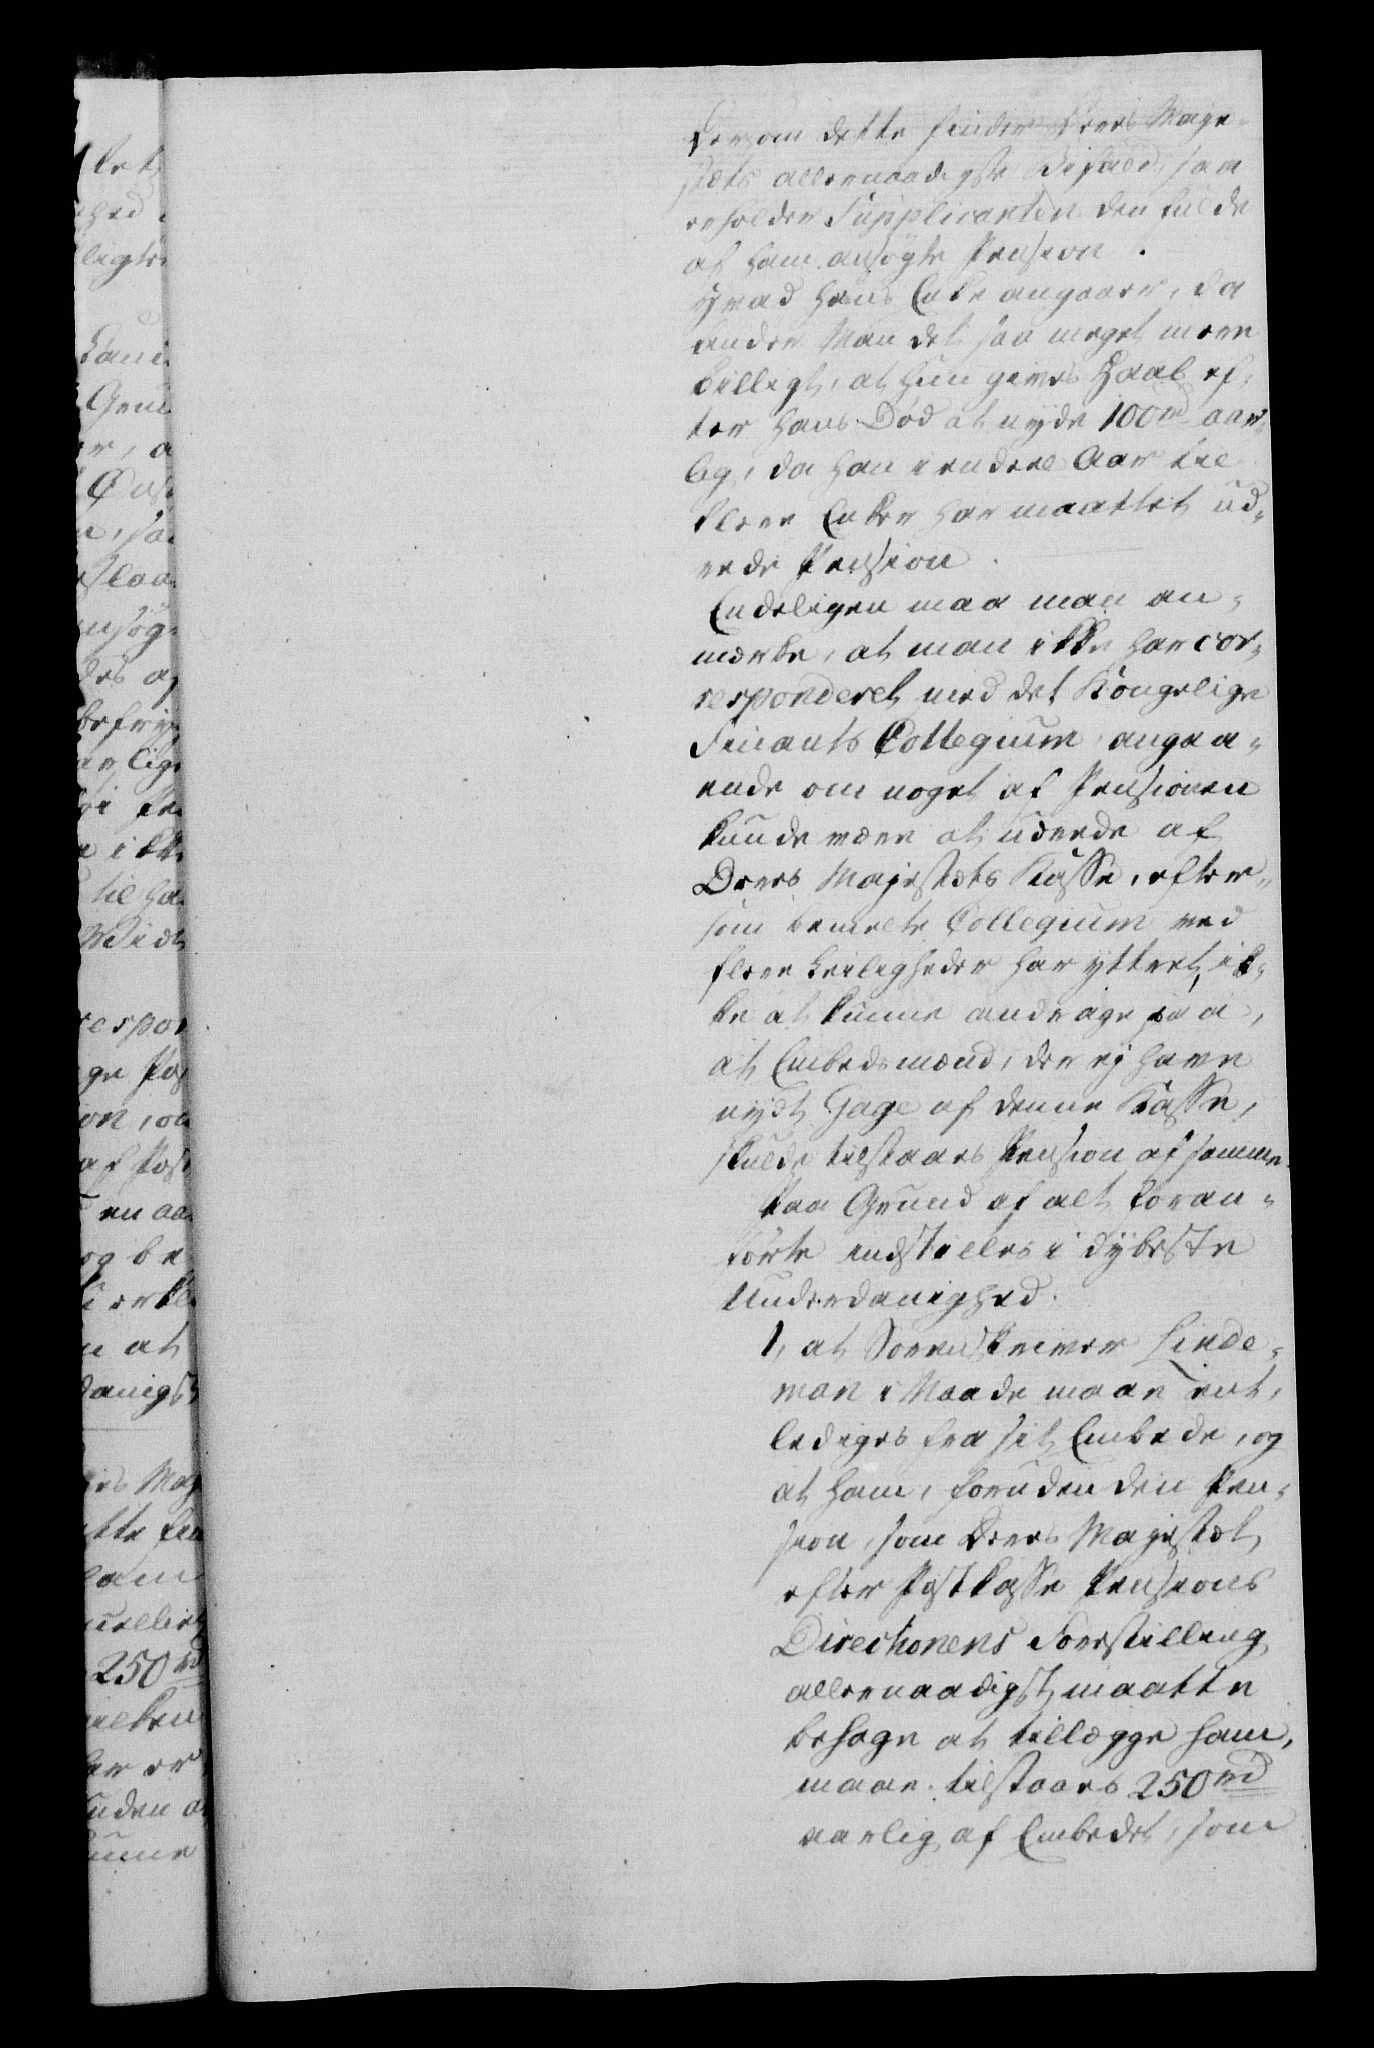 Dersom dette finder Deres Maje-
stæts allernaadigste Bifald, saa
erholder Supplicanten den fulde
af ham ansøgte Pension.
Hvad hans Enke angaaer, da
finder Man det saa meget mere
billigt, at hun gives Haab ef-
ter hans Død at nyde 100 rd aar-
lig, da han i endeel Aar til
flere Enker har maattet ud-
rede Pension.
Endeligen maa man an-
mærke, at man ikke har cor-
responderet med det Kongelige
Finants Collegium angaa-
ende om noget af Pensionen
kunde være at udrede af
Deres Majestæts Kasse, efter-
som bemelte Collegium ved
flere Leiligheder har yttret, ik-
ke at kunne andrage paa,
at Embedsmænd, der ej have
nydt Gage af denne Kasse,
skulde tilstaaes Pension af samme.
Paa Grund af alt Foran-
førte indstilles i dybeste
Underdanighed.
1, at Sorenskriver Linde-
man i Naade maae ent-
lediges fra sit Embede, og
at ham, foruden den Pen-
sion, som Deres Majestæt,
efter Postkasse Pensions
Directionens Forestilling
allernaadigst maatte
behage at tillægge ham,
maae tilstaaes 250 rd
aarlig af Embedet, som